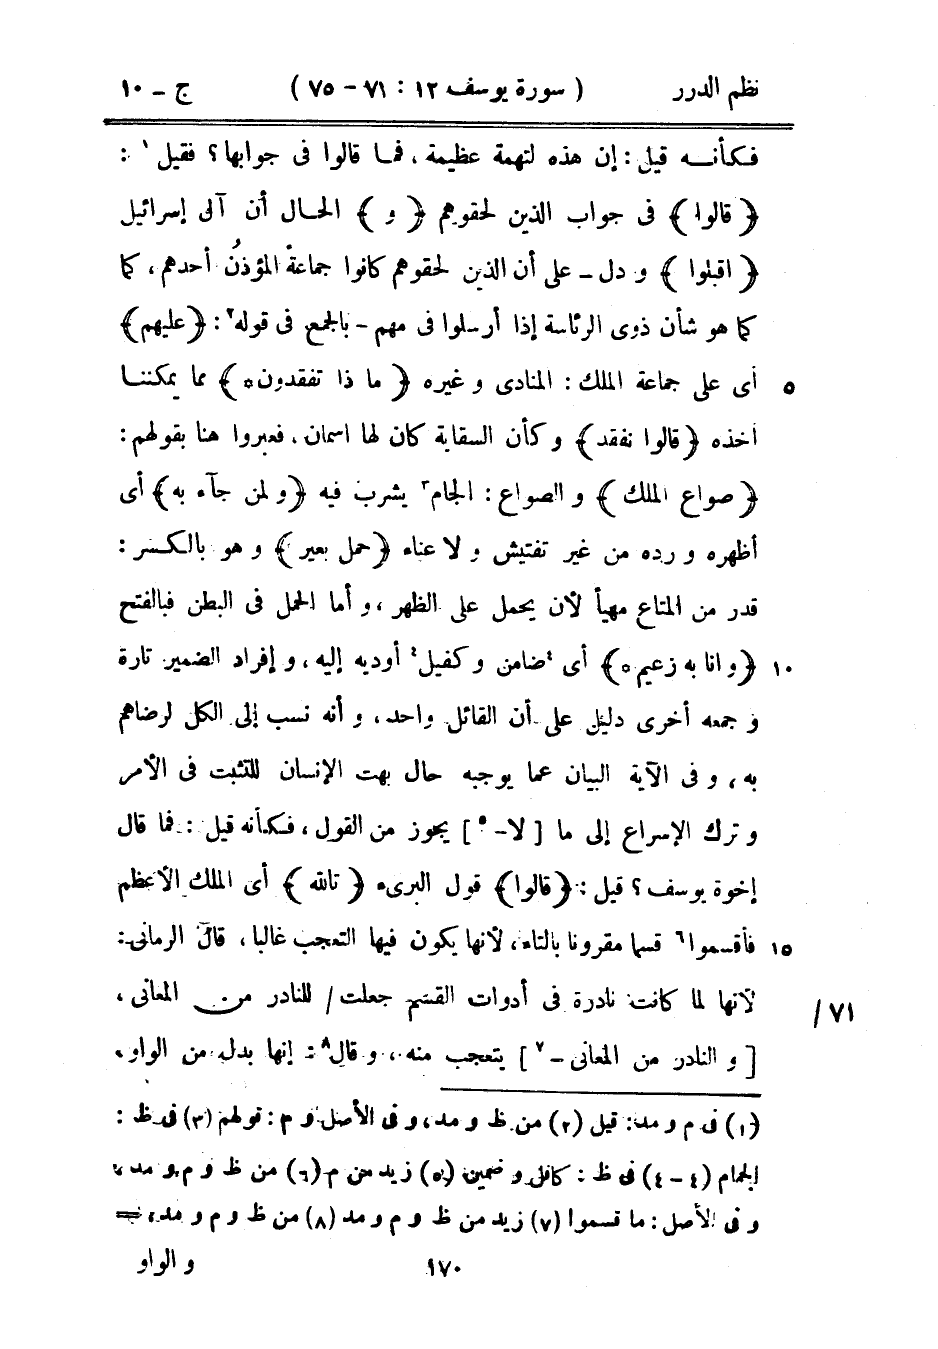 نظم الدرر ( سورة يوسف ١٢ : ٧١ - ٧٥ ) ج - ١٠
فكأنه قيل : إن هذه لتهمة عظيمة ، فما قالوا فى جوابها ؟ فقيل ١ :
﴿ قالوا ﴾ فى جواب الذين لحقوهم ﴿ و ﴾ الحال أن آل إسرائيل
﴿ اقبلوا ﴾ و دل - على أن الذين لحقوهم كانوا جماعةً المؤذنُ أحدهم ، كما
كما هو شأن ذوى الرئاسة إذا أرسلوا فى مهم - بالجمع فى قوله ٢ : ﴿ عليهم ﴾
أى على جماعة الملك : المنادى و غيره ﴿ ما ذا تفقدون ه ﴾ مما يمكننا ٥
أخذه ﴿ قالوا نفقد ﴾ و كأن السقاية كان لها اسمان ، فعبروا هنا بقولهم :
﴿ صواع الملك ﴾ و الصواع : الجام ٣ يشرب فيه ﴿ و لمن جآء به ﴾ أى
أظهره و رده من غير تفتيش و لا عناء ﴿ حمل بعير ﴾ و هو بالكسر :
قدر من المتاع مهيأ لأن يحمل على الظهر ، و أما الحمل فى البطن فبالفتح
﴿ و انا به زعيم ه ﴾ أى ٤ ضامن و كفيل ٤ أوديه إليه ، و إفراد الضمير تارة ١٠
و جمعه أخرى دليل على أن القائل واحد ، و أنه نسب إلى الكل لرضاهم
به ، و فى الآية البيان عما يوجبه حال بهت الإنسان للتثبت فى الأمر
و ترك الإسراع إلى ما [ لا - ٥ ] يجوز من القول ، فكأنه قيل : فما قال
إخوة يوسف ؟ قيل : ﴿ قالوا ﴾ قول البرىء ﴿ تالله ﴾ أى الملك الأعظم
فأقسموا ٦ قسما مقرونا بالتاء ، لأنها يكون فيها التعجب غالبا ، قال الرمانى : ١٥
لأنها لما كانت نادرة فى أدوات القسم جعلت / للنادر من المعانى ، ٧١ /
[ و النادر من المعانى - ٧ ] يتعجب منه ، و قال ٨ : إنها بدل من الواو ،
(١) فى م و مد : قيل (٢) من ظ و مد ، و فى الأصل و م : قولهم (٣) فى ظ :
الجمام (٤ - ٤) فى ظ : كافل و ضمين (٥) زيد من م (٦) من ظ و م و مد ،
و فى الأصل : ما قسموا (٧) زيد من ظ و م و مد (٨) من ظ و م و مد ،
١٧٠ و الواو